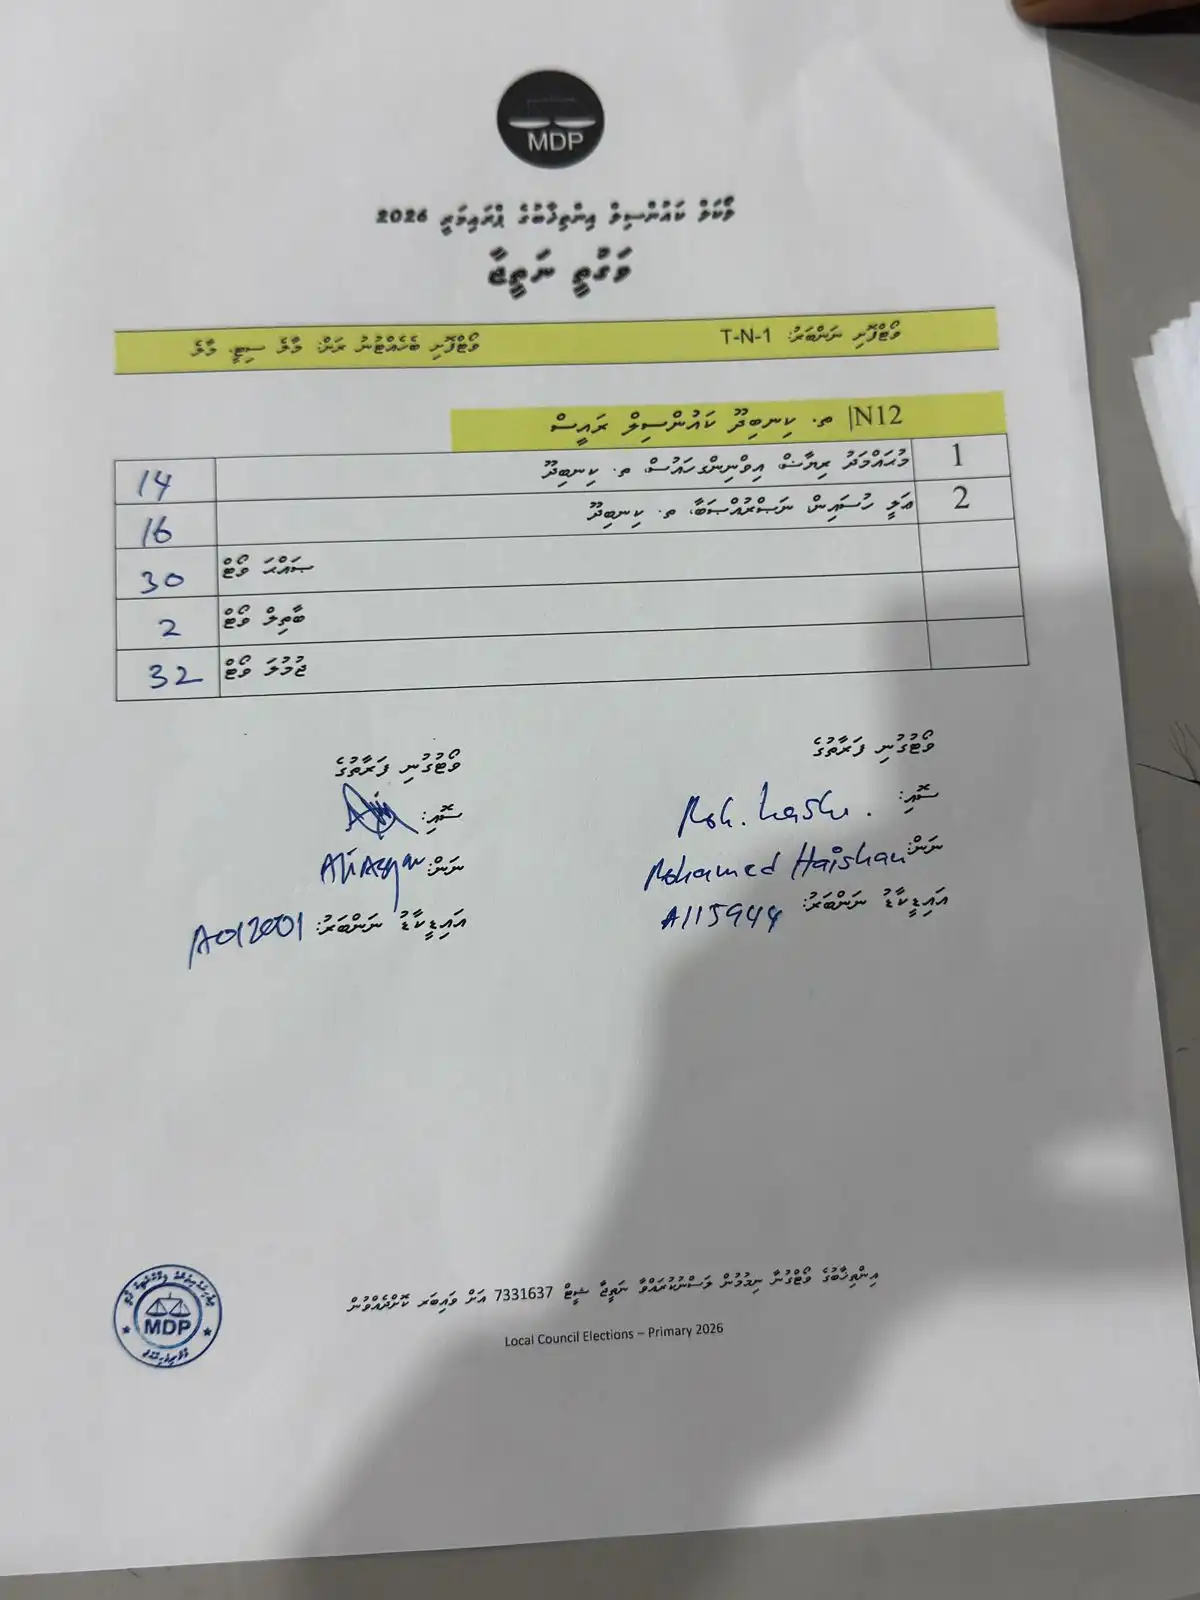 MDP
ލޯކަލް ކައުންސިލް އިންތިޚާބުގެ ޕްރައިމަރީ 2026
ވަގުތީ ނަތީޖާ
ވޯޓްފޮށި ނަންބަރު: T-N-1
ވޯޓްފޮށި ބެހެއްޓުނު ރަށް: މާލެ ސިޓީ، މާލެ
N12| ތ. ކިނބިދޫ ކައުންސިލް ރައީސް
1 މުޙައްމަދު ރިޔާޟް، އިވްނިންގހައުސް، ތ. ކިނބިދޫ 14
2 ޢަލީ ހުސައިން، ނަޞްރުއްޞަބާ، ތ. ކިނބިދޫ 16
ޞައްޙަ ވޯޓް 30
ބާޠިލް ވޯޓް 2
ޖުމުލަ ވޯޓް 32
ވޯޓުގުނި ފަރާތުގެ
ސޮއި:
ނަން: Mohamed Haishan
އައިޑީކާޑު ނަންބަރު: A115944
ވޯޓުގުނި ފަރާތުގެ
ސޮއި:
ނަން: Ali Asgar
އައިޑީކާޑު ނަންބަރު: A012001
އިންތިޚާބުގެ ވޯޓްގުނާ ނިމުމުން ލަސްނުކުރައްވާ ނަތީޖާ ޝީޓް 7331637 އަށް ވައިބަރ ކޮށްދެއްވުން
Local Council Elections – Primary 2026
MDP